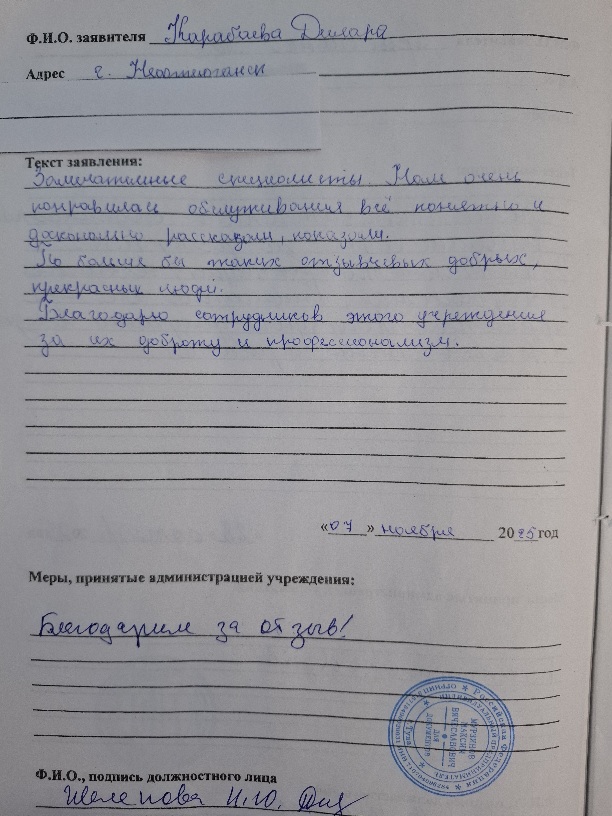 Ф.И.О. заявителя Карабаева Дилара
Адрес г. Нефтеюганск
Текст заявления:
Замечательные специалисты. Нам очень
понравилась обслуживания всё понятно и
досконально рассказали, показали.
По больше бы таких отзывчевых добрых,
прекрасных людей.
Благодарю сотрудников этого учреждения
за их доброту и профессионализм.
«07» ноября 2025 год
Меры, принятые администрацией учреждения:
Благодарим за отзыв!
Российская Федерация
ИНДИВИДУАЛЬНЫЙ ПРЕДПРИНИМАТЕЛЬ
ВЯЧЕСЛАВОВИЧ
ДЛЯ
ДОКУМЕНТОВ
Ф.И.О., подпись должностного лица
Шелепова И.Ю.